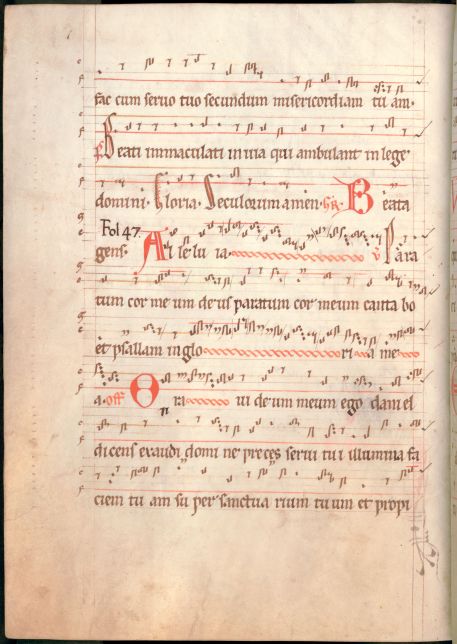 fac cum seruo tuo secundum misericordiam tu am.
Beati immaculati in uia qui ambulant in lege
domini. Gloria. Seculorum amen. Beata
Fol 47.
gens. Al le lu ia. v Para
tum cor me um de us paratum cor meum canta bo
et psallam in glo ri a me
a. off O ra ui de um meum ego dani el
dicens exaudi domi ne preces serui tu i illumina fa
ciem tu am su per sanctua rium tu um et propi